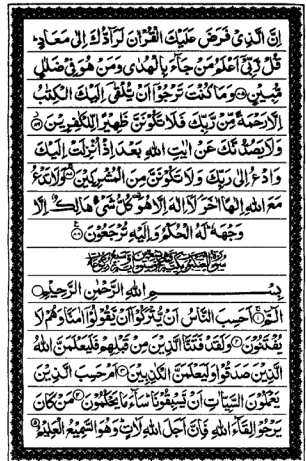 اِنَّ الَّذِیْ فَرَضَ عَلَیْكَ الْقُرْاٰنَ لَرَآدُّكَ اِلٰی مَعَادٍ ؕ
قُلْ رَّبِّیْۤ اَعْلَمُ مَنْ جَآءَ بِالْهُدٰی وَمَنْ هُوَ فِیْ ضَلٰلٍ
مُّبِیْنٍ ۝ وَمَا كُنْتَ تَرْجُوْۤا اَنْ یُّلْقٰۤی اِلَیْكَ الْكِتٰبُ
اِلَّا رَحْمَةً مِّنْ رَّبِّكَ فَلَا تَكُوْنَنَّ ظَهِیْرًا لِّلْكٰفِرِیْنَ ۝
وَلَا یَصُدُّنَّكَ عَنْ اٰیٰتِ اللّٰهِ بَعْدَ اِذْ اُنْزِلَتْ اِلَیْكَ
وَادْعُ اِلٰی رَبِّكَ وَلَا تَكُوْنَنَّ مِنَ الْمُشْرِكِیْنَ ۝ وَلَا تَدْعُ
مَعَ اللّٰهِ اِلٰهًا اٰخَرَ ۘ لَاۤ اِلٰهَ اِلَّا هُوَ ۫ كُلُّ شَیْءٍ هَالِكٌ اِلَّا
وَجْهَهٗ ؕ لَهُ الْحُكْمُ وَاِلَیْهِ تُرْجَعُوْنَ ۝
بِسْمِ اللّٰهِ الرَّحْمٰنِ الرَّحِیْمِ
الٓمّٓ ۝ اَحَسِبَ النَّاسُ اَنْ یُّتْرَكُوْۤا اَنْ یَّقُوْلُوْۤا اٰمَنَّا وَهُمْ لَا
یُفْتَنُوْنَ ۝ وَلَقَدْ فَتَنَّا الَّذِیْنَ مِنْ قَبْلِهِمْ فَلَیَعْلَمَنَّ اللّٰهُ
الَّذِیْنَ صَدَقُوْا وَلَیَعْلَمَنَّ الْكٰذِبِیْنَ ۝ اَمْ حَسِبَ الَّذِیْنَ
یَعْمَلُوْنَ السَّیِّاٰتِ اَنْ یَّسْبِقُوْنَا ؕ سَآءَ مَا یَحْكُمُوْنَ ۝ مَنْ كَانَ
یَرْجُوْا لِقَآءَ اللّٰهِ فَاِنَّ اَجَلَ اللّٰهِ لَاٰتٍ ؕ وَهُوَ السَّمِیْعُ الْعَلِیْمُ ۝